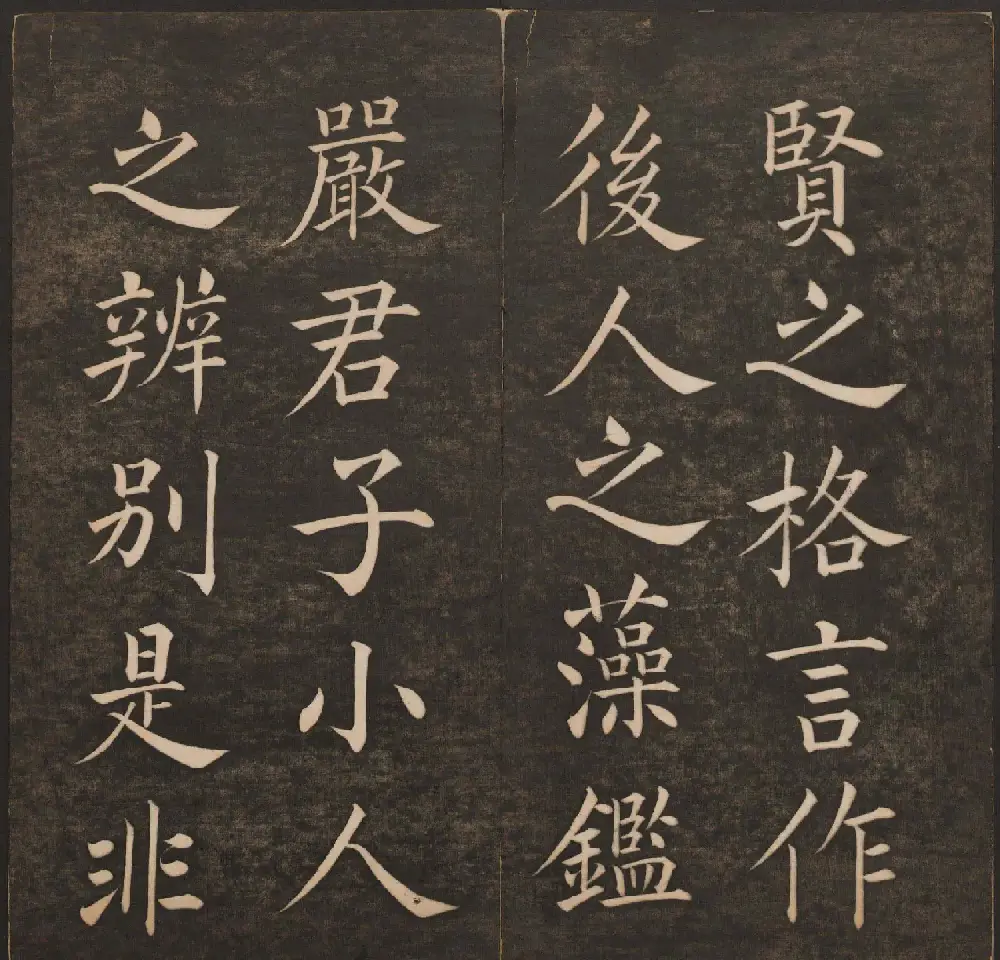 賢之格言作
後人之藻鑑
嚴君子小人
之辨别是非